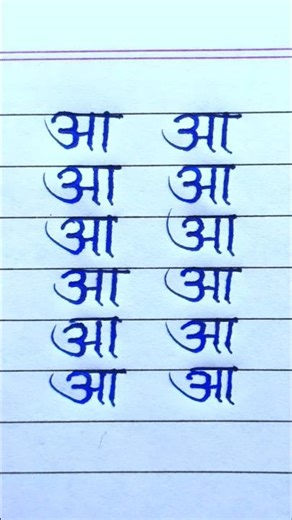 आ आ
आ आ
आ आ
आ आ
आ आ
आ आ